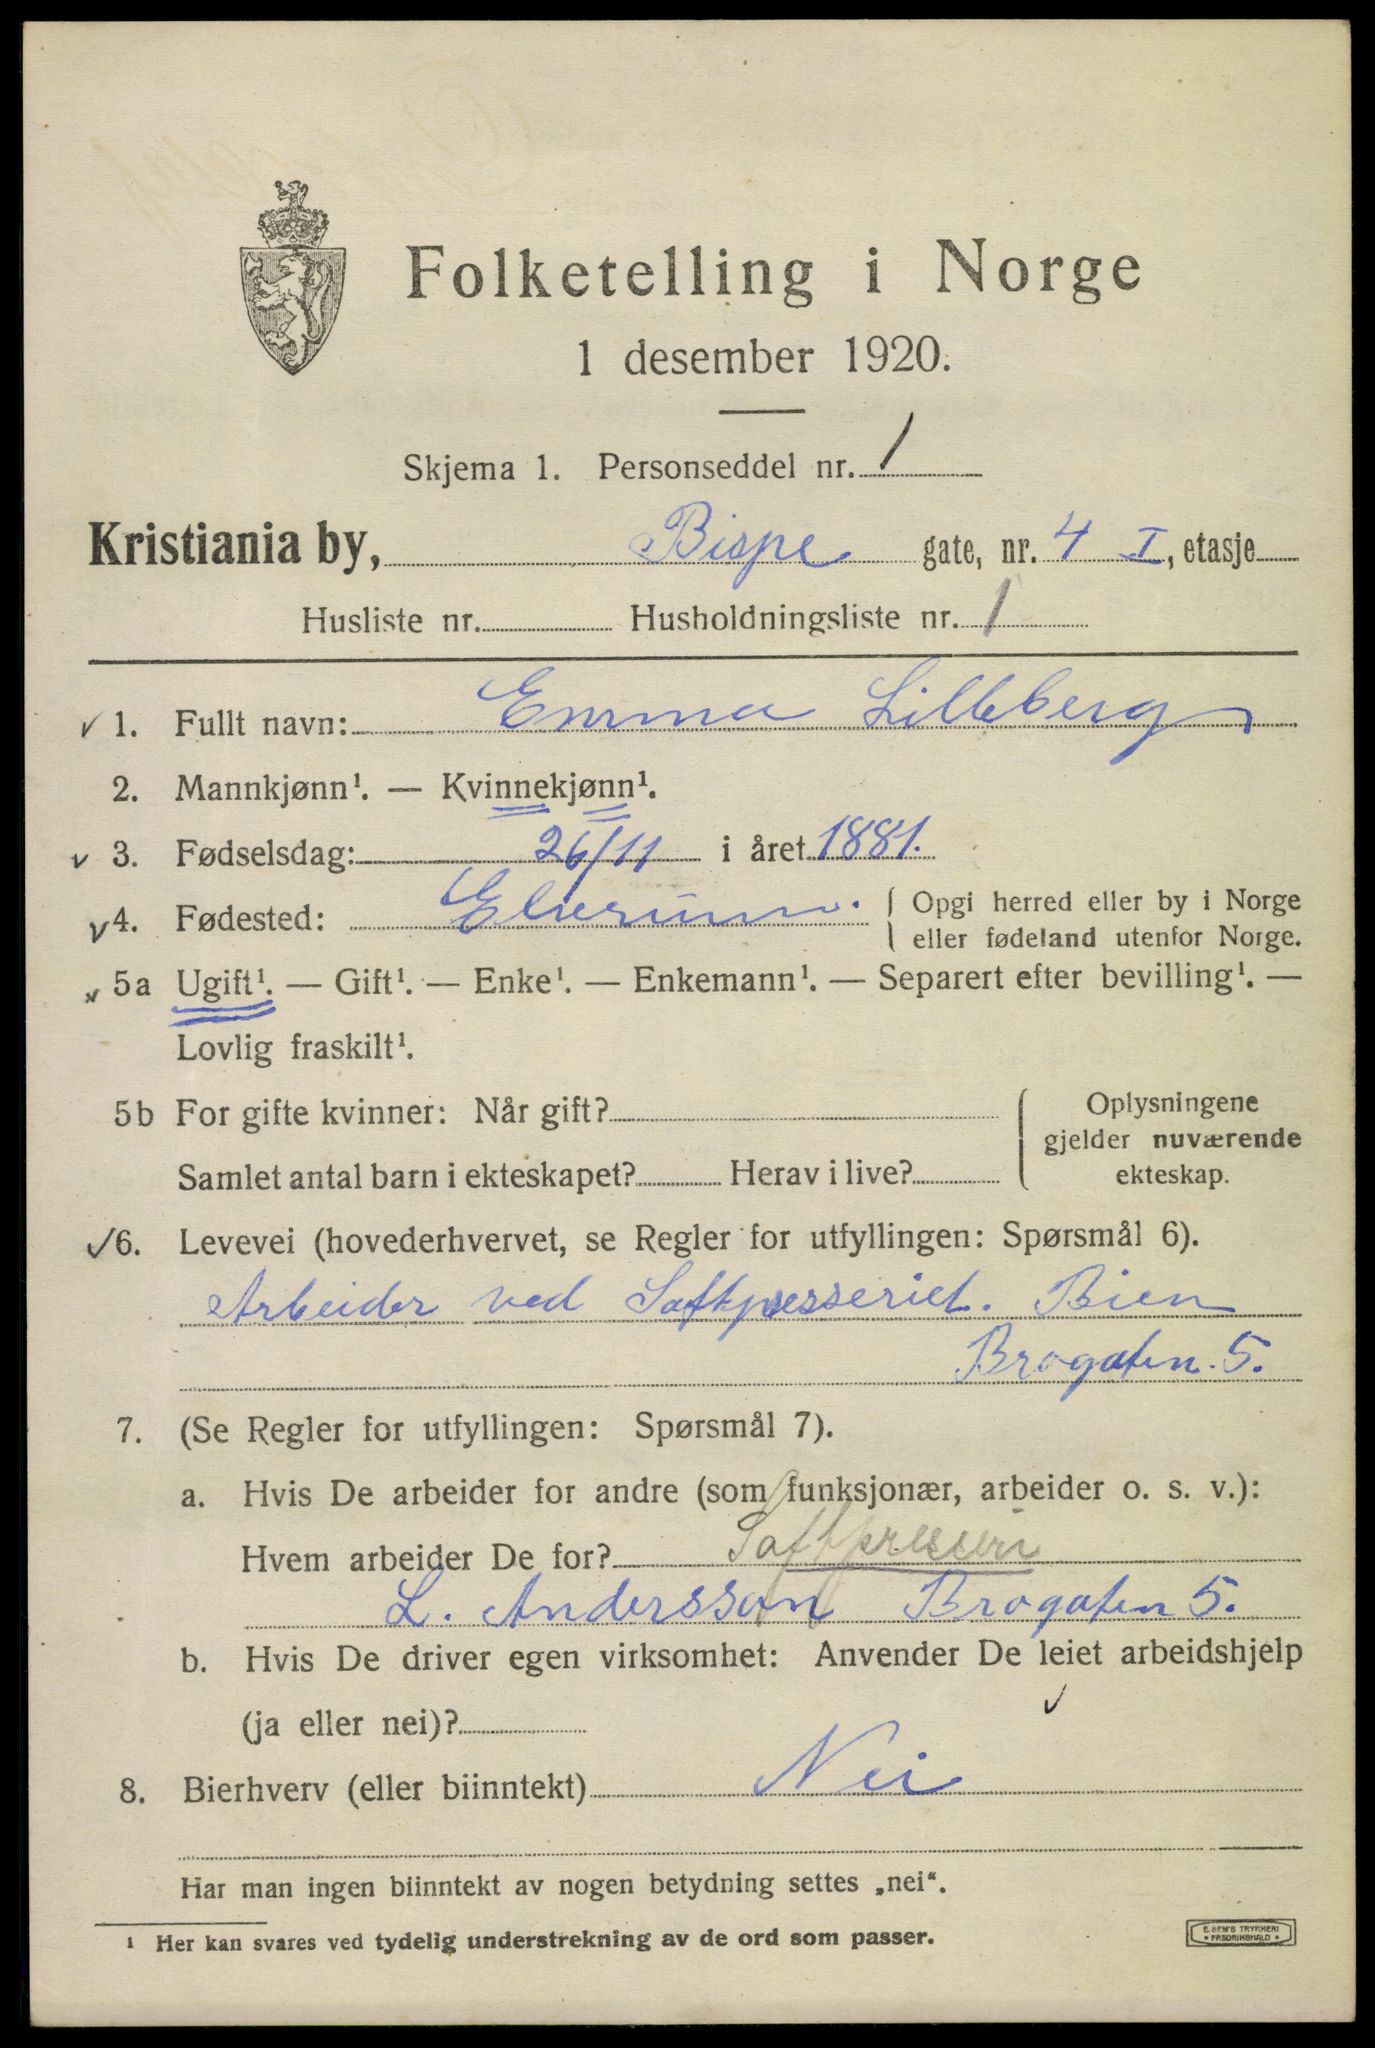 Folketelling i Norge
1 desember 1920.
Skjema 1. Personseddel nr. 1
Kristiania by, Bispe gate, nr. 4 I, etasje
Husliste nr. Husholdningsliste nr. 1
1. Fullt navn: Emma Lilleberg
2. Mannkjønn¹. — Kvinnekjønn¹.
3. Fødselsdag: 26/11 i året 1881.
4. Fødested: Elverum. { Opgi herred eller by i Norge
eller fødeland utenfor Norge.
5a Ugift¹. — Gift¹. — Enke¹. — Enkemann¹. — Separert efter bevilling¹. —
Lovlig fraskilt¹.
5b For gifte kvinner: Når gift? { Oplysningene
gjelder nuværende
Samlet antal barn i ekteskapet? Herav i live? ekteskap.
6. Levevei (hovederhvervet, se Regler for utfyllingen: Spørsmål 6).
Arbeider ved Saftpresseriet. Bien
Brogaten. 5.
7. (Se Regler for utfyllingen: Spørsmål 7).
a. Hvis De arbeider for andre (som funksjonær, arbeider o. s. v.):
Hvem arbeider De for? Saftpresseri
L. Andersson Brogaten 5.
b. Hvis De driver egen virksomhet: Anvender De leiet arbeidshjelp
(ja eller nei)?
8. Bierhverv (eller biinntekt) Nei
Har man ingen biinntekt av nogen betydning settes „nei“.
¹ Her kan svares ved tydelig understrekning av de ord som passer.
E. SEM'S TRYKKERI
FREDRIKSHALD